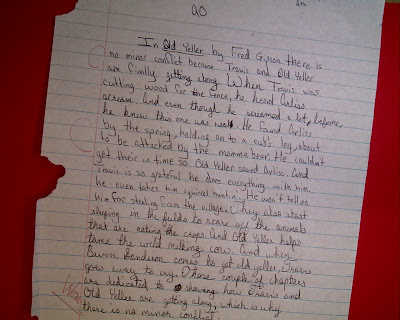 8th
90
In Old Yeller by Fred Gipson there is
no minor conflict because Travis and Old Yeller
are finally getting along. When Travis was
cutting wood for the fence, he heard Arliss
scream. And even though he screamed a lot before
he knew this one was . He found Arliss
by the spring, holding on to a cub's leg, about
to be attacked by the momma bear. He couldn't
get their in time so Old Yeller saved Arliss. And
Travis is so grateful he does everything with him.
he even takes him squirrel huntin'. He won't tell on
him for stealing from the village. They also start
sleeping in the fields to scare off the animals
that are eating the crops. And Old Yeller helps
tame the wild milking cow. And when
Burn Sanderson comes to get old yeller, Travis
goes away to cry. Those couple of chapters
are dedicated to showing how Travis and
Old Yeller are getting along, which is why
there is no minor conflict.